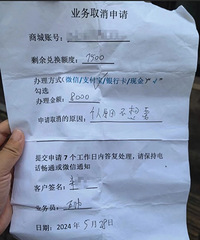 业务取消申请
商城账号：
剩余兑换额度：7500
办理方式（微信/支付宝/银行卡/现金"√"
勾选
办理金额：8000
申请取消的原因：
提交申请 7 个工作日内答复处理，请保持电
话畅通或微信通知
客户签名：
业务员：
日期：2024 年 5 月 28 日